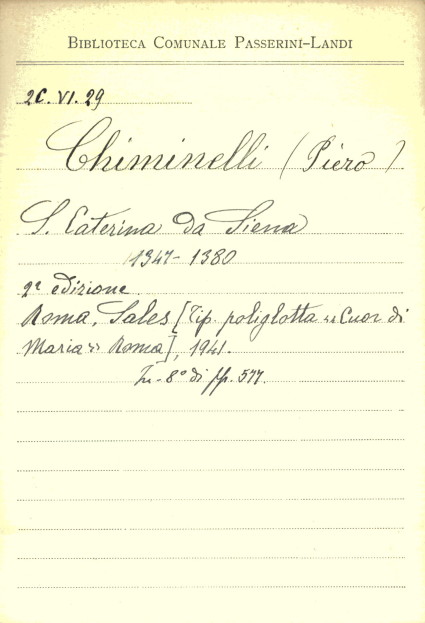 BIBLIOTECA COMUNALE PASSERINI-LANDI
2C. VI. 29
Chiminelli (Piero)
S. Caterina da Siena
1347-1380
2ª edizione
Roma, Sales [Tip. poliglotta "Cuor di
Maria" Roma], 1941.
In-8° di pp. 577.